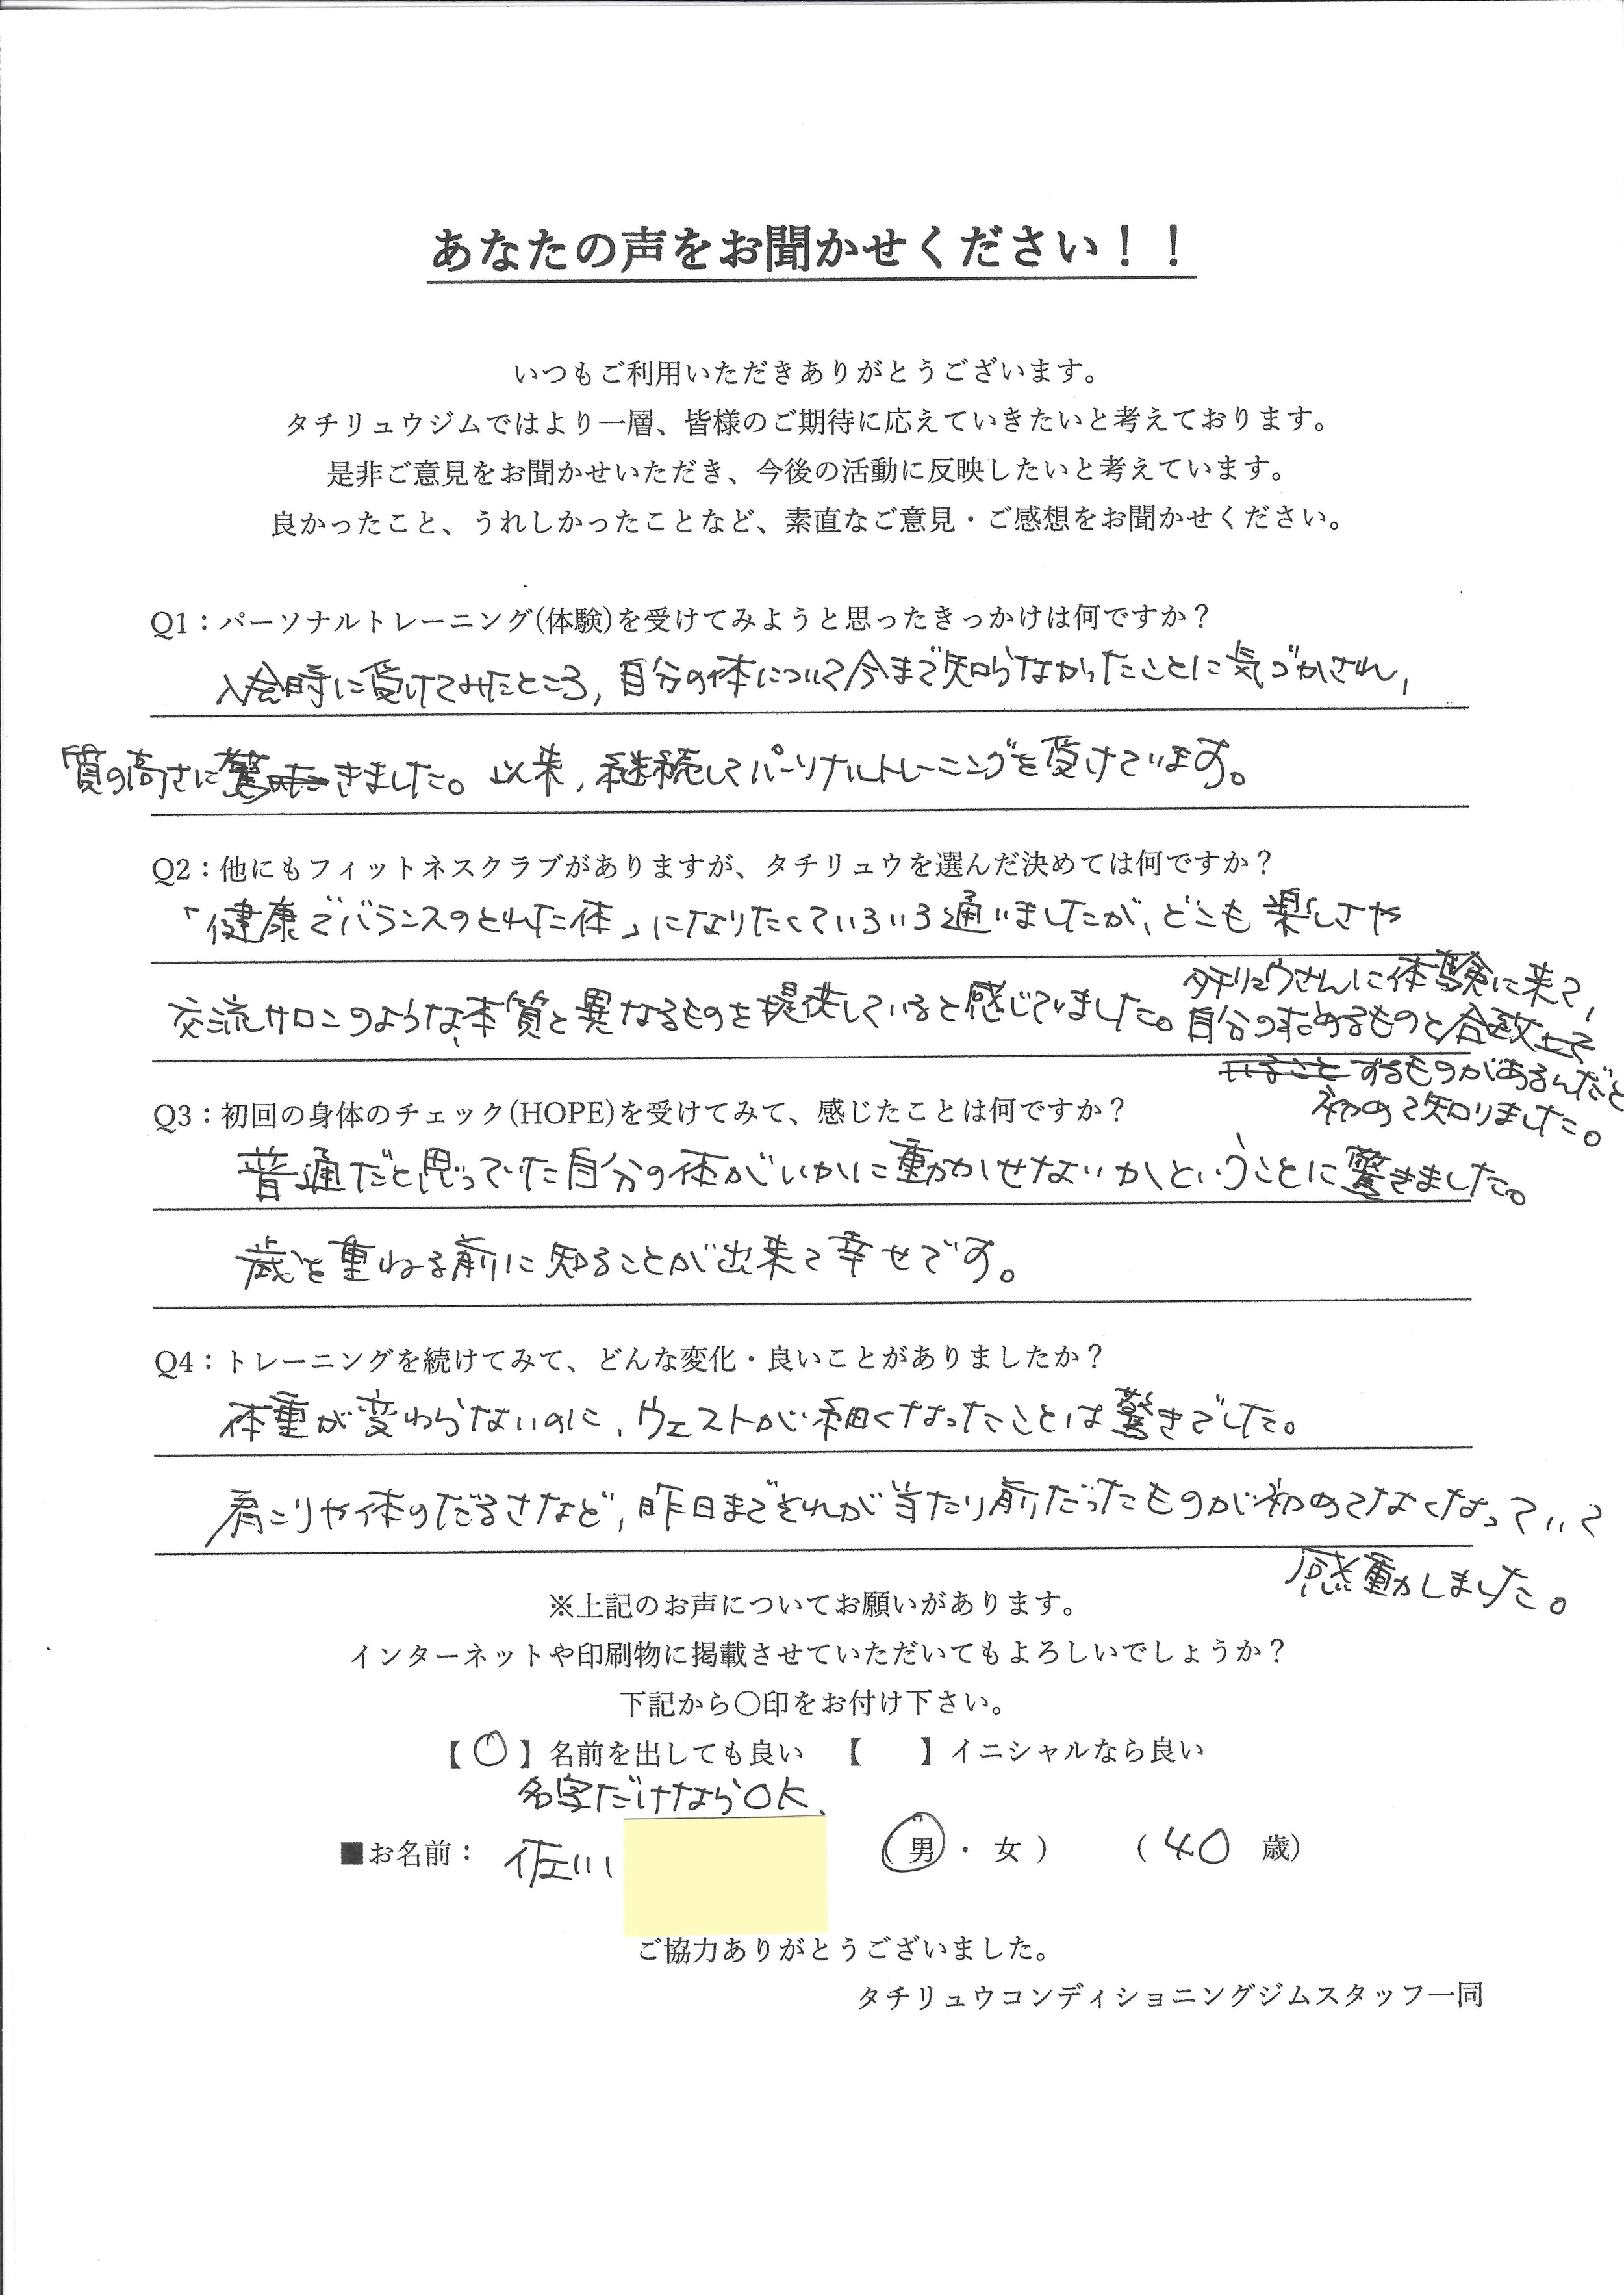 あなたの声をお聞かせください！！
いつもご利用いただきありがとうございます。
タチリュウジムではより一層、皆様のご期待に応えていきたいと考えております。
是非ご意見をお聞かせいただき、今後の活動に反映したいと考えています。
良かったこと、うれしかったことなど、素直なご意見・ご感想をお聞かせください。
Q1：パーソナルトレーニング(体験)を受けてみようと思ったきっかけは何ですか？
入会時に受けてみたところ，自分の体について今まで知らなかったことに気づかされ，
質の高さに驚きました。以来，継続してパーソナルトレーニングを受けています。
Q2：他にもフィットネスクラブがありますが、タチリュウを選んだ決めては何ですか？
「健康でバランスのとれた体」になりたくていろいろ通いましたが、どこも楽しさや
交流サロンのような、本質と異なるものを提供していると感じていました。
タチリュウさんに体験に来て，
自分の求めるものと合致
するものがあるんだと
初めて知りました。
Q3：初回の身体のチェック(HOPE)を受けてみて、感じたことは何ですか？
普通だと思っていた自分の体がいかに動かせないか、ということに驚きました。
歳を重ねる前に知ることが出来て幸せです。
Q4：トレーニングを続けてみて、どんな変化・良いことがありましたか？
体重が変わらないのに、ウェストが細くなったことは驚きでした。
肩こりや体のだるさなど，昨日までそれが当たり前だったものが初めてなくなっていて
感動しました。
※上記のお声についてお願いがあります。
インターネットや印刷物に掲載させていただいてもよろしいでしょうか？
下記から〇印をお付け下さい。
【〇】名前を出しても良い 【　】イニシャルなら良い
名字だけならOK、
■お名前： 佐川 （男・女） （40 歳）
ご協力ありがとうございました。
タチリュウコンディショニングジムスタッフ一同